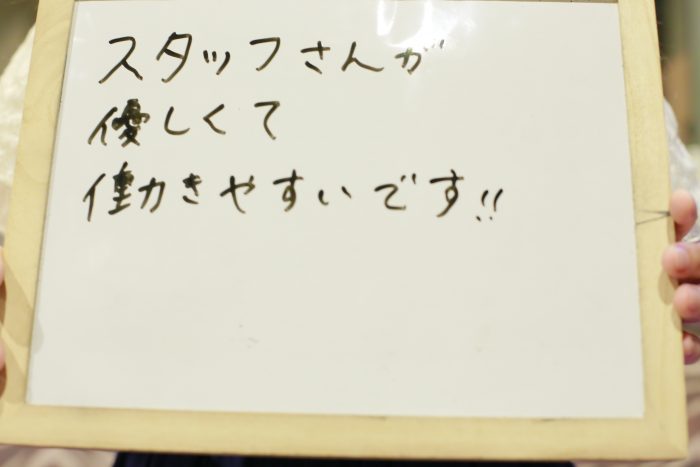 スタッフさんが
優しくて
働きやすいです!!